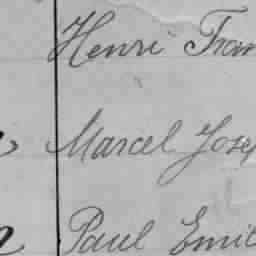 Henri Fran
Marcel Josep
Paul Emil